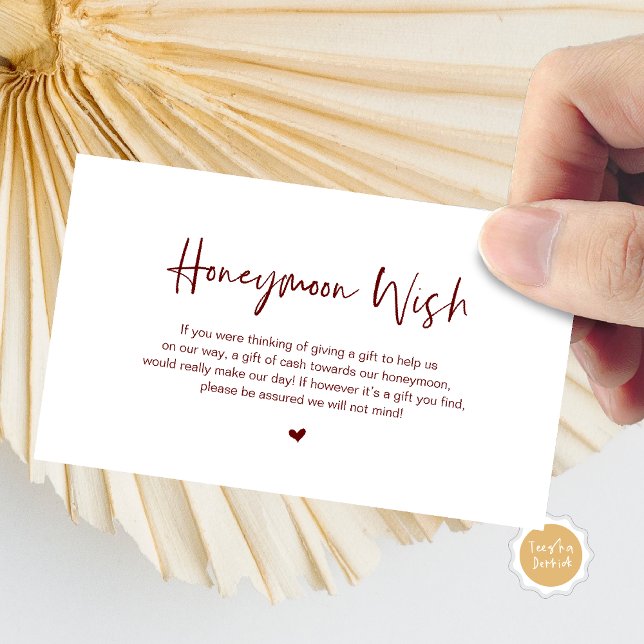 Honeymoon Wish
If you were thinking of giving a gift to help us
on our way, a gift of cash towards our honeymoon,
would really make our day! If however it's a gift you find,
please be assured we will not mind!
Teesha
Derrick